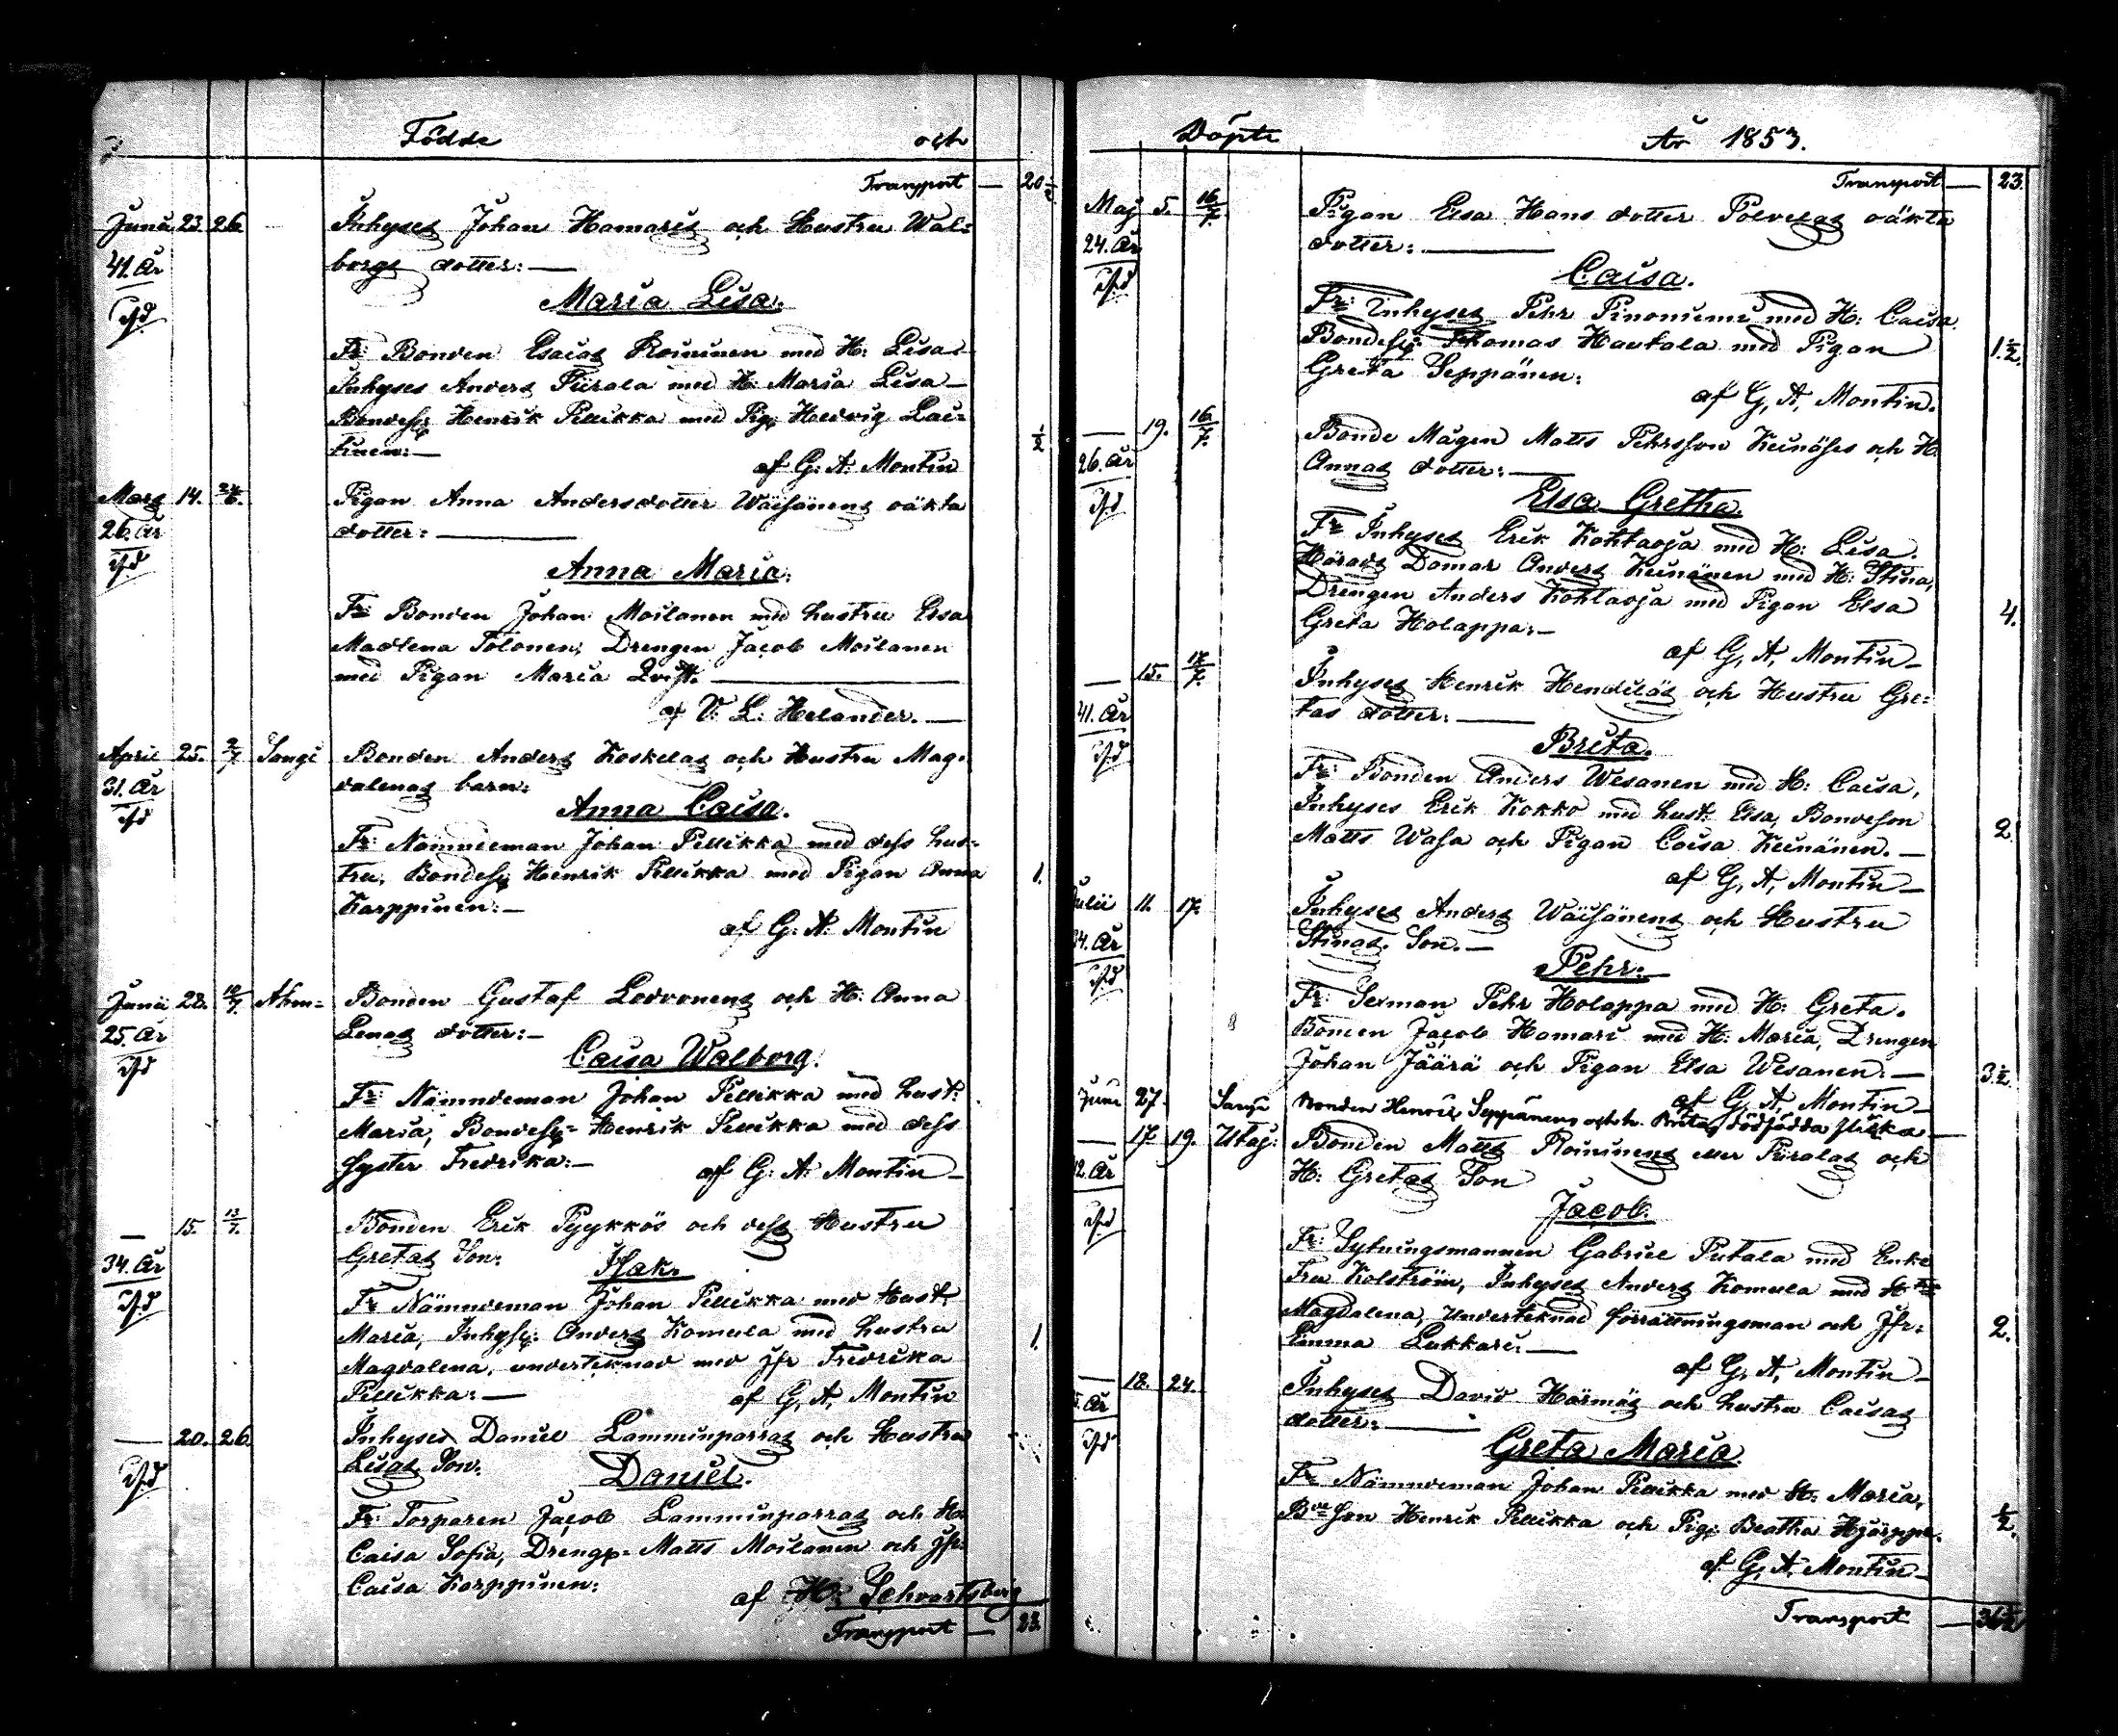 Födde och
Transport — 20 1/2
Junii 23 26 Inhyses Johan Hamaris och Hustru Wal=
41. År borgs dotter: —
Maria Lisa.
Fr: Bonden Esaias Roininen med H: Lisa
Inhyses Anders Piirala med H: Maria Lisa —
Bondes: Henrik Pellikka med Pig: Hedvig Lai=
tinen: — 1/2
af G: A: Montin
Mars 14. 24/6. Pigan Anna Andersdotter Wäisänens oäkta
26. År dotter: —
Anna Maria.
Fr: Bonden Johan Moilanen med hustru Elsa
Madlena Tolonen, Drengen Jacob Moilanen
med Pigan Maria Qvist. —
af V: L: Helander. —
April 25. 2/7 Sangi Bonden Anders Koskelas och Hustru Mag=
31. År dalenas barn:
Anna Caisa.
Fr: Nämndeman Johan Pellikka med dess hus=
tru, Bondes: Henrik Pellikka med Pigan Anna 1.
Karppinen: —
af G: A: Montin
Junii 28. 10/7 Ahm= Bonden Gustaf Lovvonens och H: Anna
25. År Lenas dotter: —
Caisa Walborg.
Fr: Nämndeman Johan Pellikka med hust:
Maria, Bondes: Henrik Pellikka med dess
Syster Fredrika: — af G: A: Montin —
— 15. 13/7. Bonden Erik Pyykkös och dess Hustru
34. År Gretas Son: Isak.
Fr: Nämndeman Johan Pellikka med Hust:
Maria, Inhys: Anders Komula med hustru 1.
Magdalena, undertecknad med Jfr Fredrika
Pellikka: — af G, A, Montin
— 20. 26 Inhyses Daniel Lamminparras och Hustru
Lisas Son: Daniel.
Fr: Torparen Jacob Lamminparras och H:
Caisa Sofia, Dreng: Matts Moilanen och Jfr:
Caisa Karppinen:
af H: Schvartsberg
Transport — 23.
Döpte År 1853.
Transport — 23.
Maj 5. 16/7. Pigan Elsa Hans dotter Polvelas oäkta
24. År dotter: —
Caisa.
Fr: Inhyses Pehr Pinoniemi med H: Caisa
Bondes: Thomas Hautala med Pigan 1 1/2
Greta Seppänen:
af G, A, Montin.
— 19. 16/7. Bonde Mågen Matts Pehrsson Keinäses och H.
26. År Annas dotter: —
Elsa Gretha.
Fr: Inhyses Erik Kohtaoja med H: Lisa.
Härads Domar Anders Keinänen med H: Stina,
Drengen Anders Kohtaoja med Pigan Elsa 4.
Greta Holappa: —
af G, A, Montin —
— 15. 17/7. Inhyses Henrik Hendiläs och Hustru Gre=
41. År tas dotter: —
Brita.
Fr: Bonden Anders Wesanen med H: Caisa,
Inhyses Erik Kokko med hust: Elsa, Bondeson
Matts Wasa och Pigan Caisa Keinänen. — 2
af G, A, Montin —
Julii 11. 17. Inhyses Anders Wäisänens och Hustru
34. År Stinas Son. —
Pehr. —
Fr: Sexman Pehr Holappa med H: Greta.
Bonden Jacob Hamari med H: Maria, Drengen
Johan Jäärä och Pigan Elsa Wesanen. — 3 1/2
af G, A, Montin —
Junii 27. Sangi Bonden Henrik Seppänens och h. Britas dödfödda flicka —
— 17. 19. Utaj: Bonden Matts Roininens eller Piiralas och
H: Gretas Son
Jacob.
Fr: Sytningsmannen Gabriel Putala med Enke
Fru Kolström, Inhyses Anders Komula med H:
Magdalena, Undertecknad förrättningsman och Jfr: 2.
Emma Lukkari: —
af G, A, Montin —
— 18. 24. Inhyses David Härmäs och hustru Caisas
dotter: —
Greta Maria.
Fr: Nämndeman Johan Pellikka med H: Maria,
Bdeson Henrik Pellikka och Pig: Beatha Hyärppe. 1/2.
af G, A, Montin —
Transport — 36 1/2